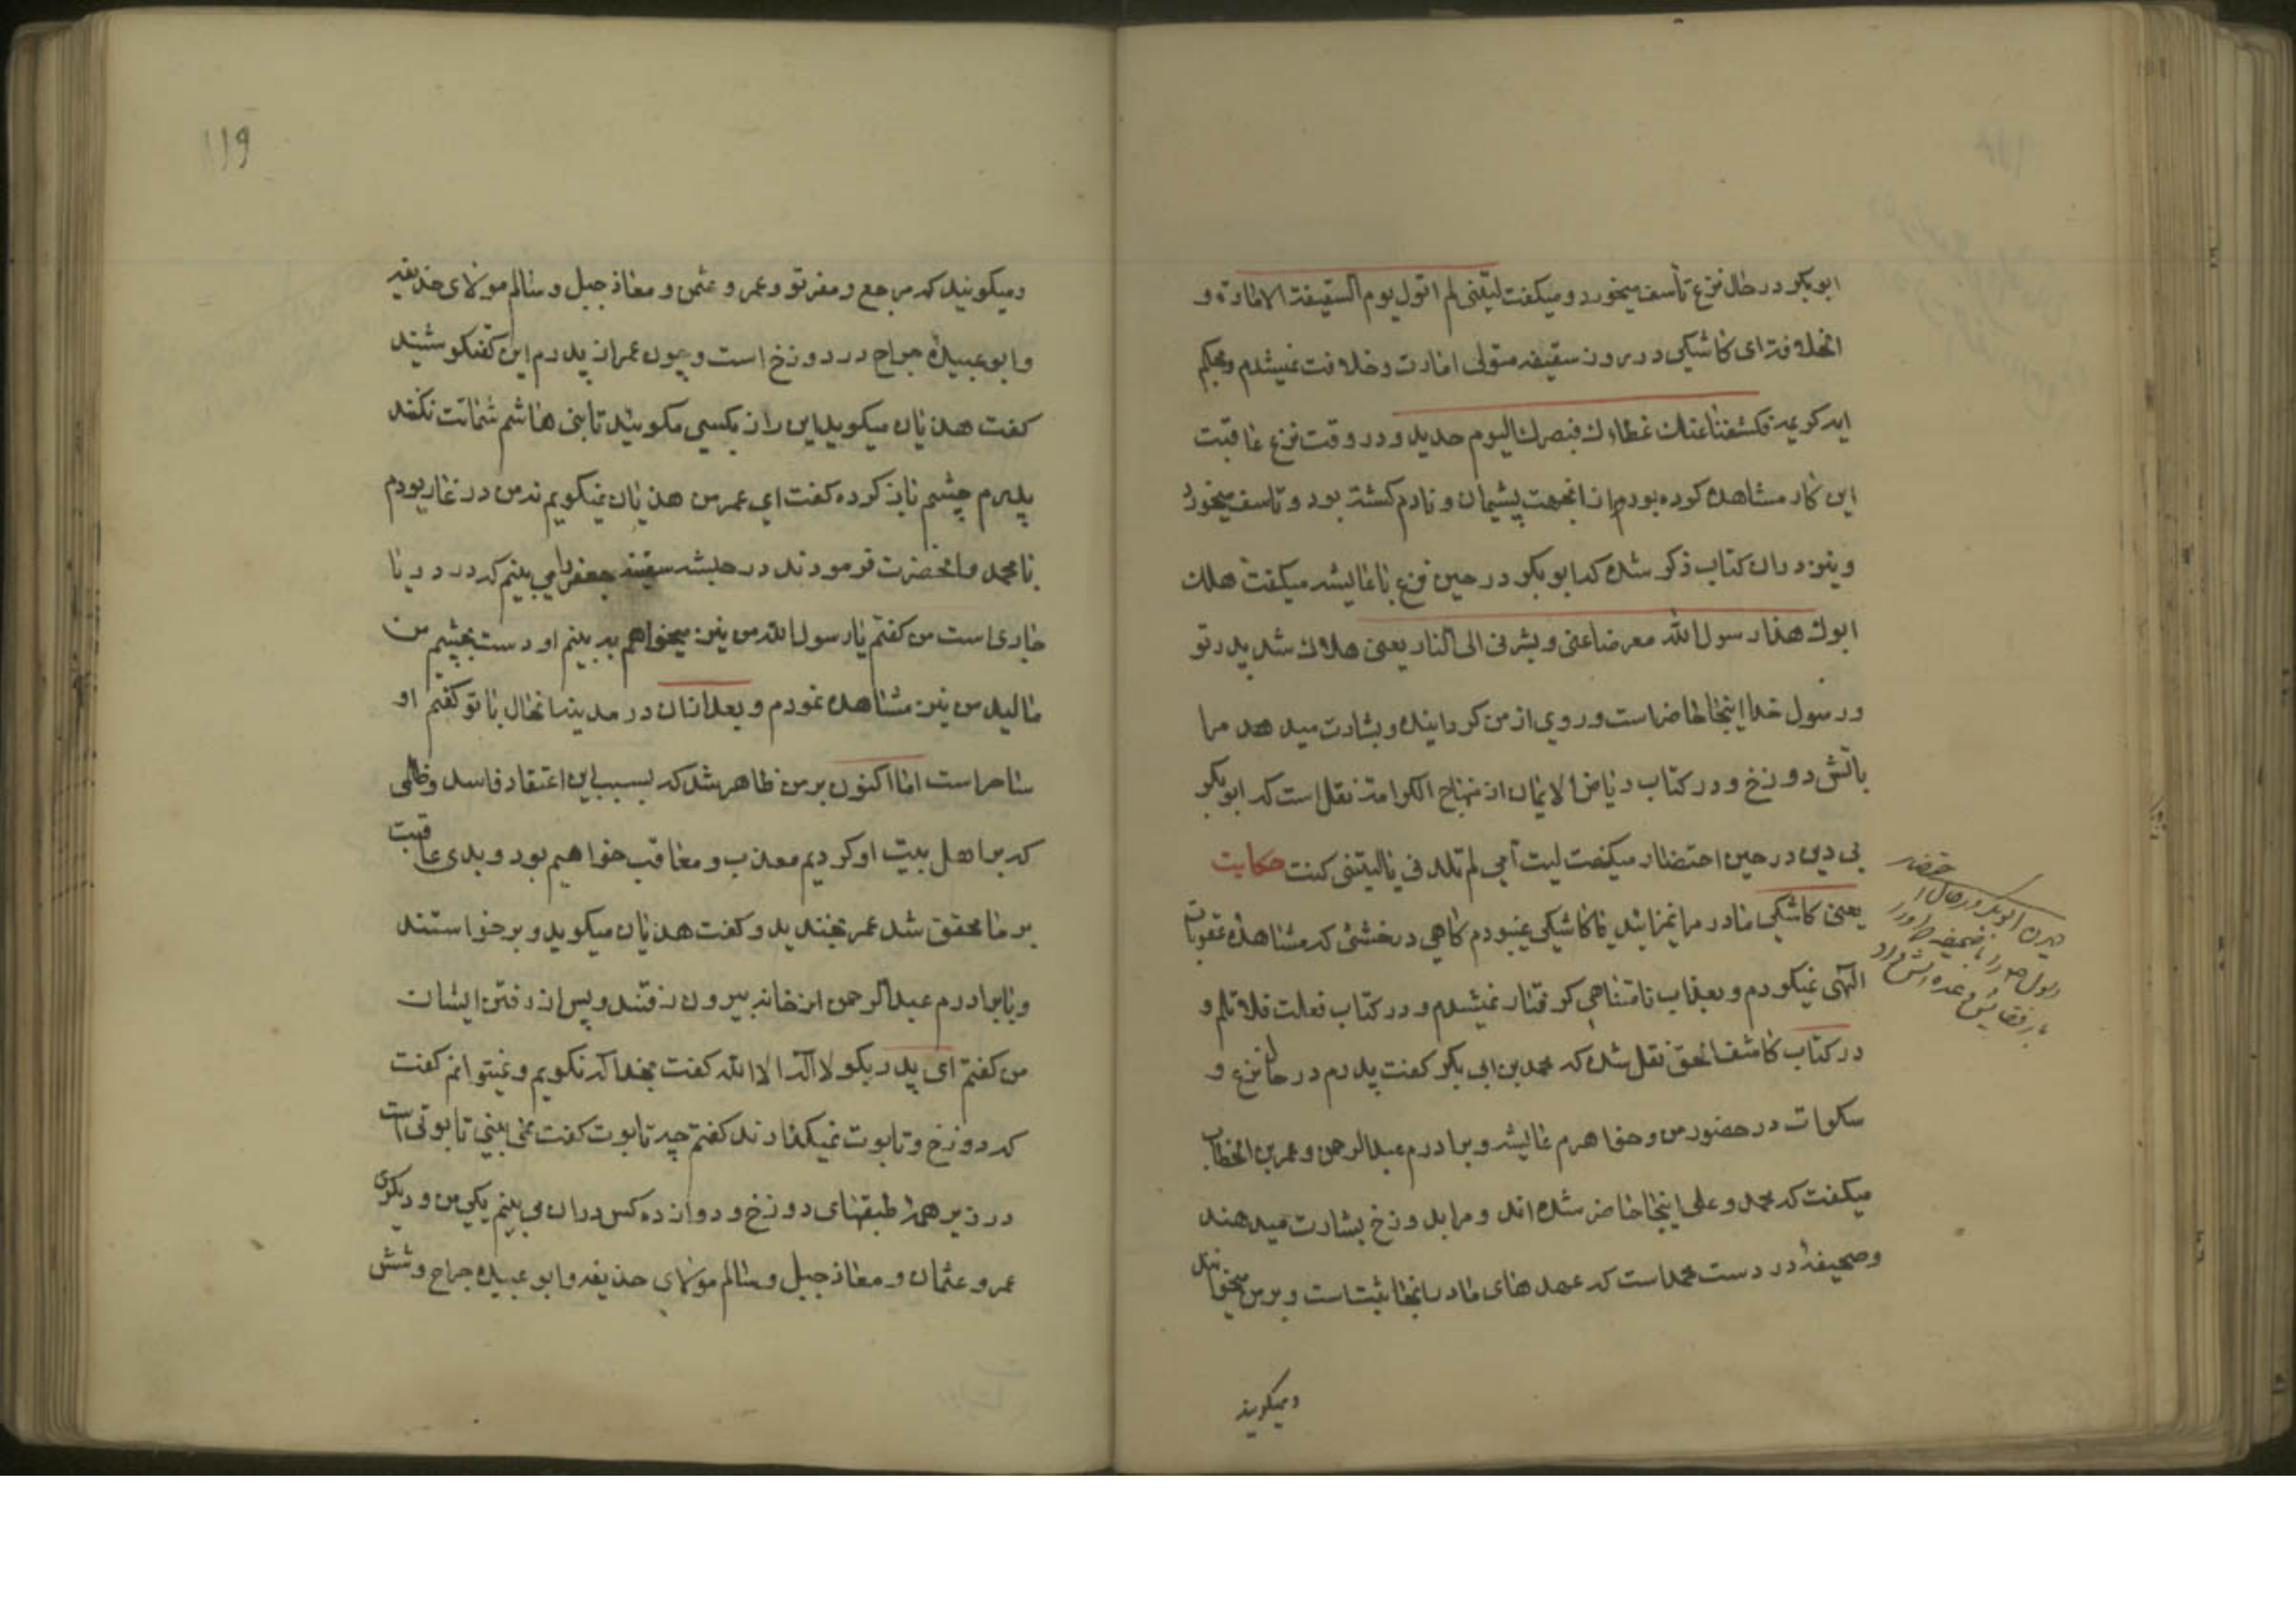 ابوبکر در حال نزع تأسف میخورد و میکفت لیتنی لم اتول یوم السقیفة الامارة و
الخلافة ای کاشکی در روز سقیفه متولی امارت و خلافت نمیشدم و بحکم
ایه کریمه فکشفنا عنک غطاءک فبصرک الیوم حدید و در وقت نزع عاقبت
این کار مشاهده کرده بودم از انجهت پشیمان و نادم کشته بود و تاسف میخورد
و نیز دران کتاب ذکر شده که ابوبکر در حین نزع با عایشه میکفت هلک
ابوک هذا رسول الله معرضا عنی و بشرنی الی النار یعنی هلاک شد پدر تو
و رسول خدا اینجا حاضر است و روی از من کردانیده و بشارت میدهد مرا
باتش دوزخ و در کتاب ریاض الایمان از منهاج الکرامة نقل است که ابوبکر
بی دین در حین احتضار میکفت لیت امی لم تلدنی یا لیتنی کنت حکایت
یعنی کاشکی مادر مرا نمیزائید یا کاشکی میبودم کاهی در خشتی که مشاهده عقوبات
الهی نمیکردم و بعذاب نامتناهی کرفتار نمیشدم و در کتاب فعلت فلا تلم و
در کتاب کاشف الحق نقل شده که محمد بن ابی بکر کفت پدرم در حال نزع و
سکرات در حضور من و خواهرم عایشه و برادرم عبدالرحمن و عمر بن الخطاب
میکفت که محمد و علی اینجا حاضر شده اند و مرا بدوزخ بشارت میدهند
و صحیفهٔ در دست محمد است که عهدهای ما در انجا ثبت است و بر من میخوانند
ومیکویند
دیدن ابوبکر در حال احتضار
رسول ص را
ومیکویند که مرجع و مفر تو و عمر و عثمن و معاذ جبل و سالم مولای حذیفه
و ابوعبیده جراح در دوزخ است و چون عمر از پدرم این کفتکو شنید
کفت هذیان میکوید این راز بکسی مکوئید تا بنی هاشم شماتت نکنند
پدرم چشم باز کرده کفت ای عمر من هذیان نمیکویم نه من در غار بودم
با محمد و انحضرت فرمودند در حبشه سفینه جعفر را می بینم که در دریا
جاری است من کفتم یا رسول الله من نیز میخواهم به بینم او دست بچشم من
مالید من نیز مشاهده نمودم و بعد ازان در مدینه انحال با تو کفتم او
ساحر است اما اکنون بر من ظاهر شد که بسبب این اعتقاد فاسد و ظلمی
که بر اهل بیت او کردیم معذب و معاقب خواهیم بود و بدی عاقبت
بر ما محقق شد عمر بخندید و کفت هذیان میکوید و برخواستند
و با برادرم عبدالرحمن از خانه بیرون رفتند و پس از رفتن ایشان
من کفتم ای پدر بکو لا اله الا الله کفت بخدا که نکویم و نمیتوانم کفت
که دوزخ و تابوت نمیکذارند کفتم چه تابوت کفت نمی بینی تابوتی است
در زیر همهٔ طبقهای دوزخ و دوازده کس دران می بینم یکی من و دیکری
عمر و عثمان و معاذ جبل و سالم مولای حذیفه و ابوعبیده جراح و شش
119